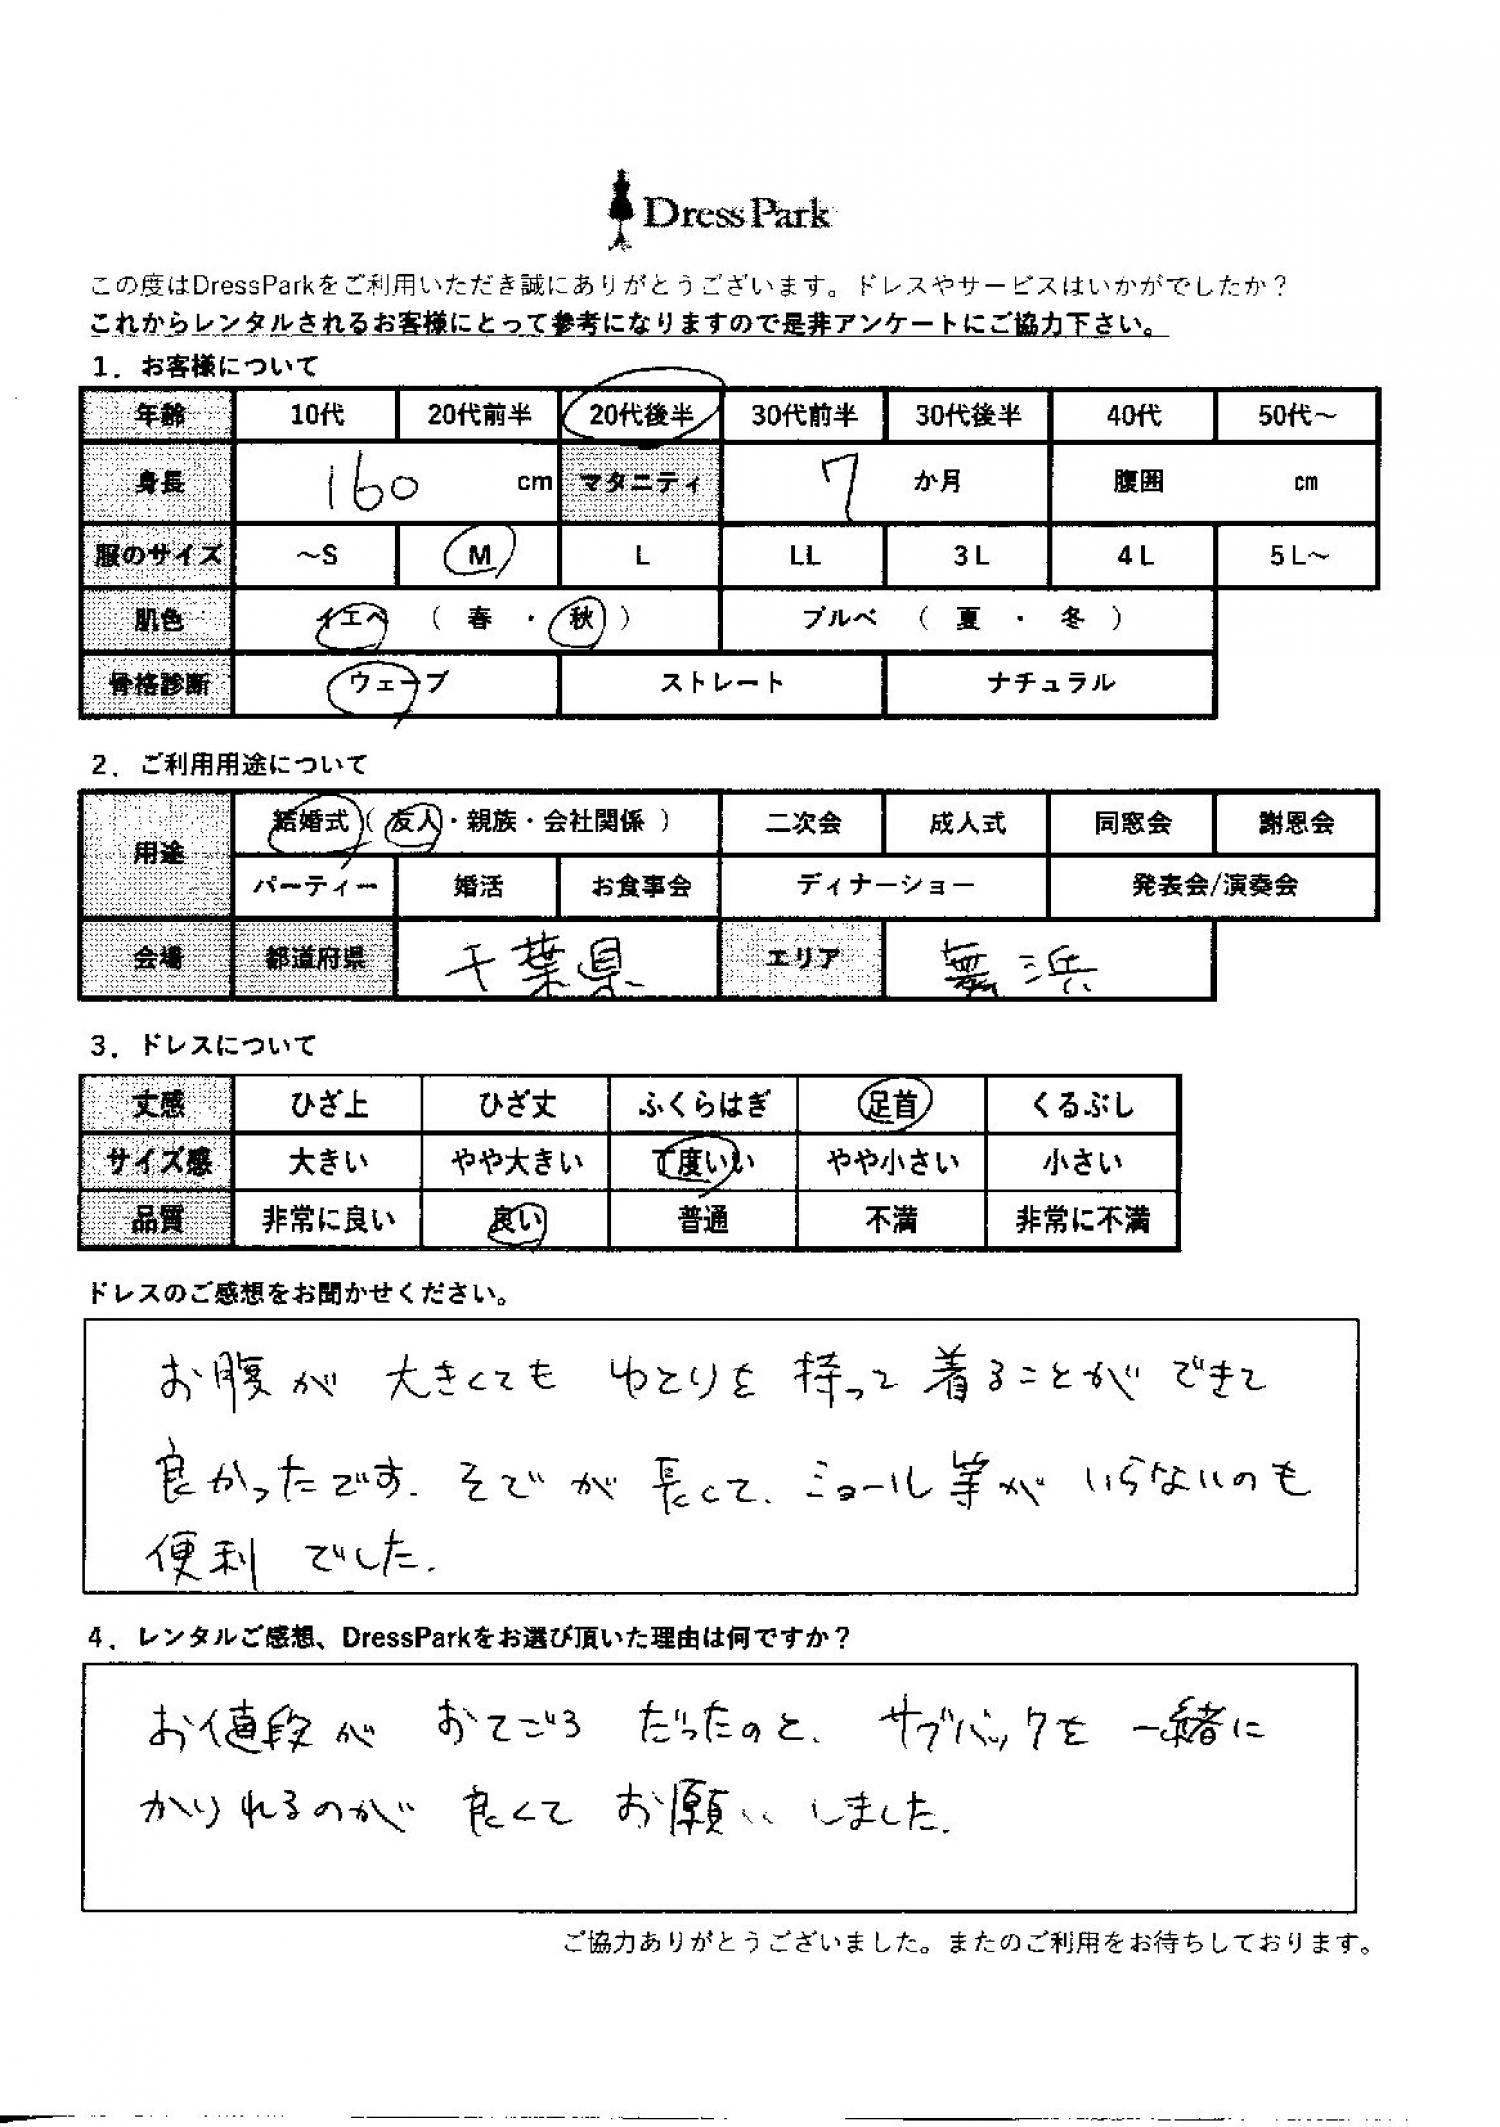 DressPark
この度はDressParkをご利用いただき誠にありがとうございます。ドレスやサービスはいかがでしたか？
これからレンタルされるお客様にとって参考になりますので是非アンケートにご協力下さい。
1．お客様について
年齢 10代 20代前半 20代後半 30代前半 30代後半 40代 50代～
身長 160 cm マタニティ 7 か月 腹囲 cm
服のサイズ ～S M L LL 3L 4L 5L～
肌色 イエベ （ 春 ・ 秋 ） ブルベ （ 夏 ・ 冬 ）
骨格診断 ウェーブ ストレート ナチュラル
2．ご利用用途について
用途 結婚式（ 友人・親族・会社関係 ） 二次会 成人式 同窓会 謝恩会
パーティー 婚活 お食事会 ディナーショー 発表会/演奏会
会場 都道府県 千葉県 エリア 舞浜
3．ドレスについて
丈感 ひざ上 ひざ丈 ふくらはぎ 足首 くるぶし
サイズ感 大きい やや大きい 丁度いい やや小さい 小さい
品質 非常に良い 良い 普通 不満 非常に不満
ドレスのご感想をお聞かせください。
お腹が大きくてもゆとりを持って着ることができて
良かったです．そでが長くて、ショール等がいらないのも
便利でした．
4．レンタルご感想、DressParkをお選び頂いた理由は何ですか？
お値段がおてごろだったのと、サブバックを一緒に
かりれるのが良くてお願いしました．
ご協力ありがとうございました。またのご利用をお待ちしております。